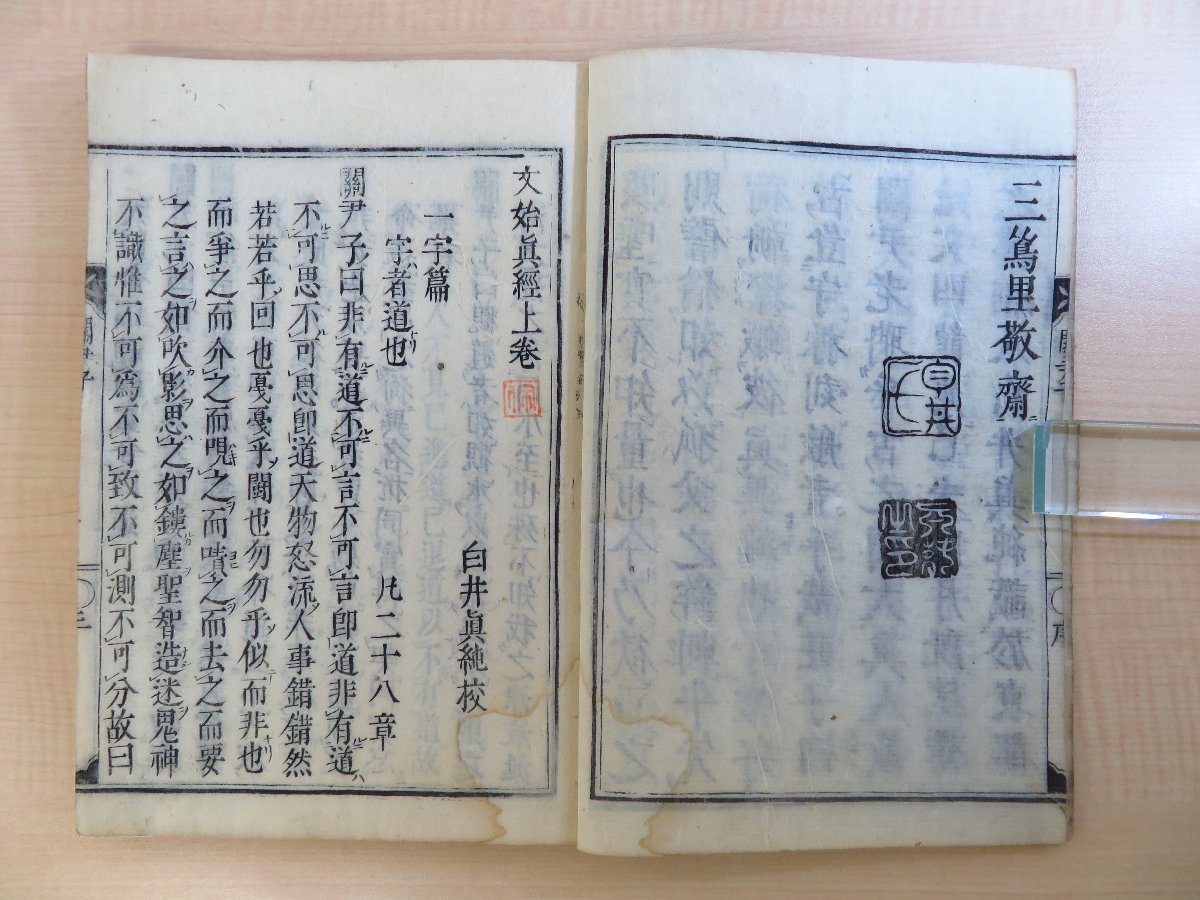 三蔦里敬齋
文始眞經上卷
白井眞純校
一宇篇
宇者道也
凡二十八章
關尹子曰非有道不可言不可言即道非有道
不可思不可思即道天物怒流人事錯錯然
若若乎回也戞戞乎鬪也勿勿乎似而非也
而爭之而介之而哯之而嘖之而去之而要
之言之如吹影思之如鏤塵聖智造迷鬼神
不識惟不可爲不可致不可測不可分故曰